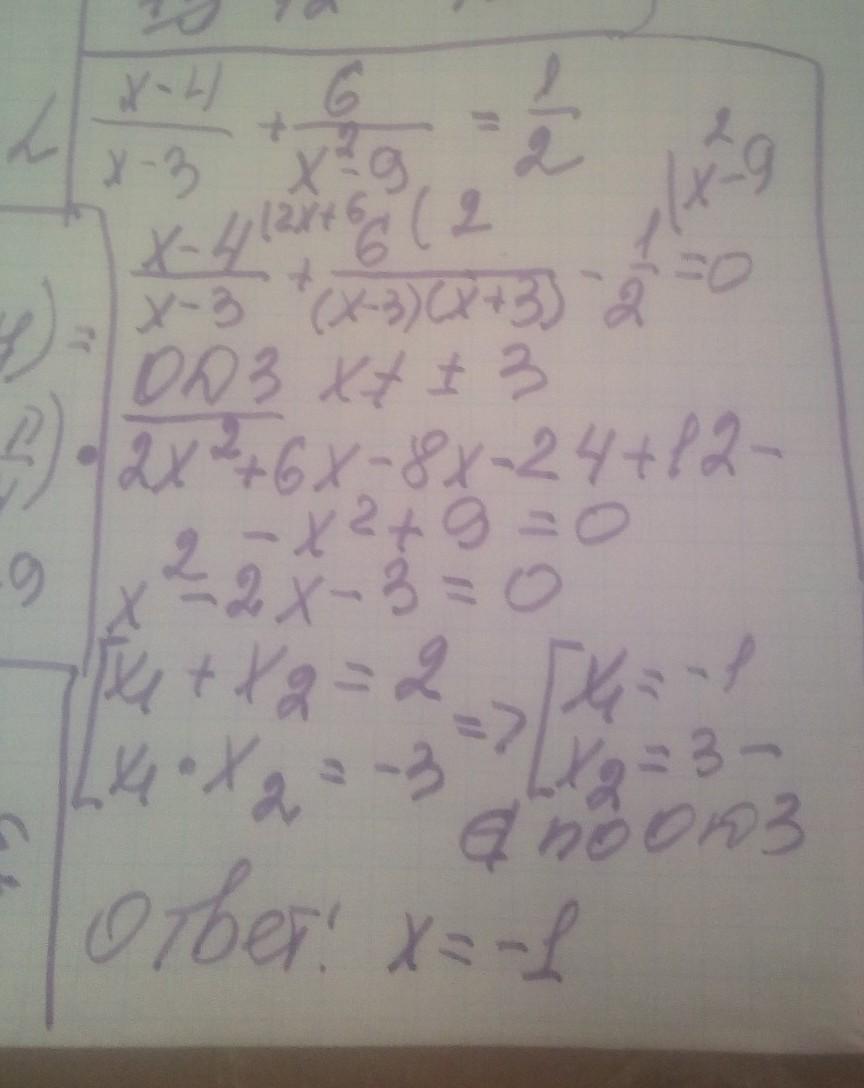 (x-4)/(x-3) + 6/(x²-9) = 1/2
(x-4)/(x-3) (2x+6 + 6/((x-3)(x+3)) (2 - 1/2 (x²-9 = 0
ОДЗ x ≠ ± 3
2x²+6x-8x-24+12-
-x²+9=0
x²-2x-3=0
[x₁+x₂=2 => [x₁=-1
x₁·x₂=-3 x₂=3-
∉ по ОДЗ
Ответ: x=-1